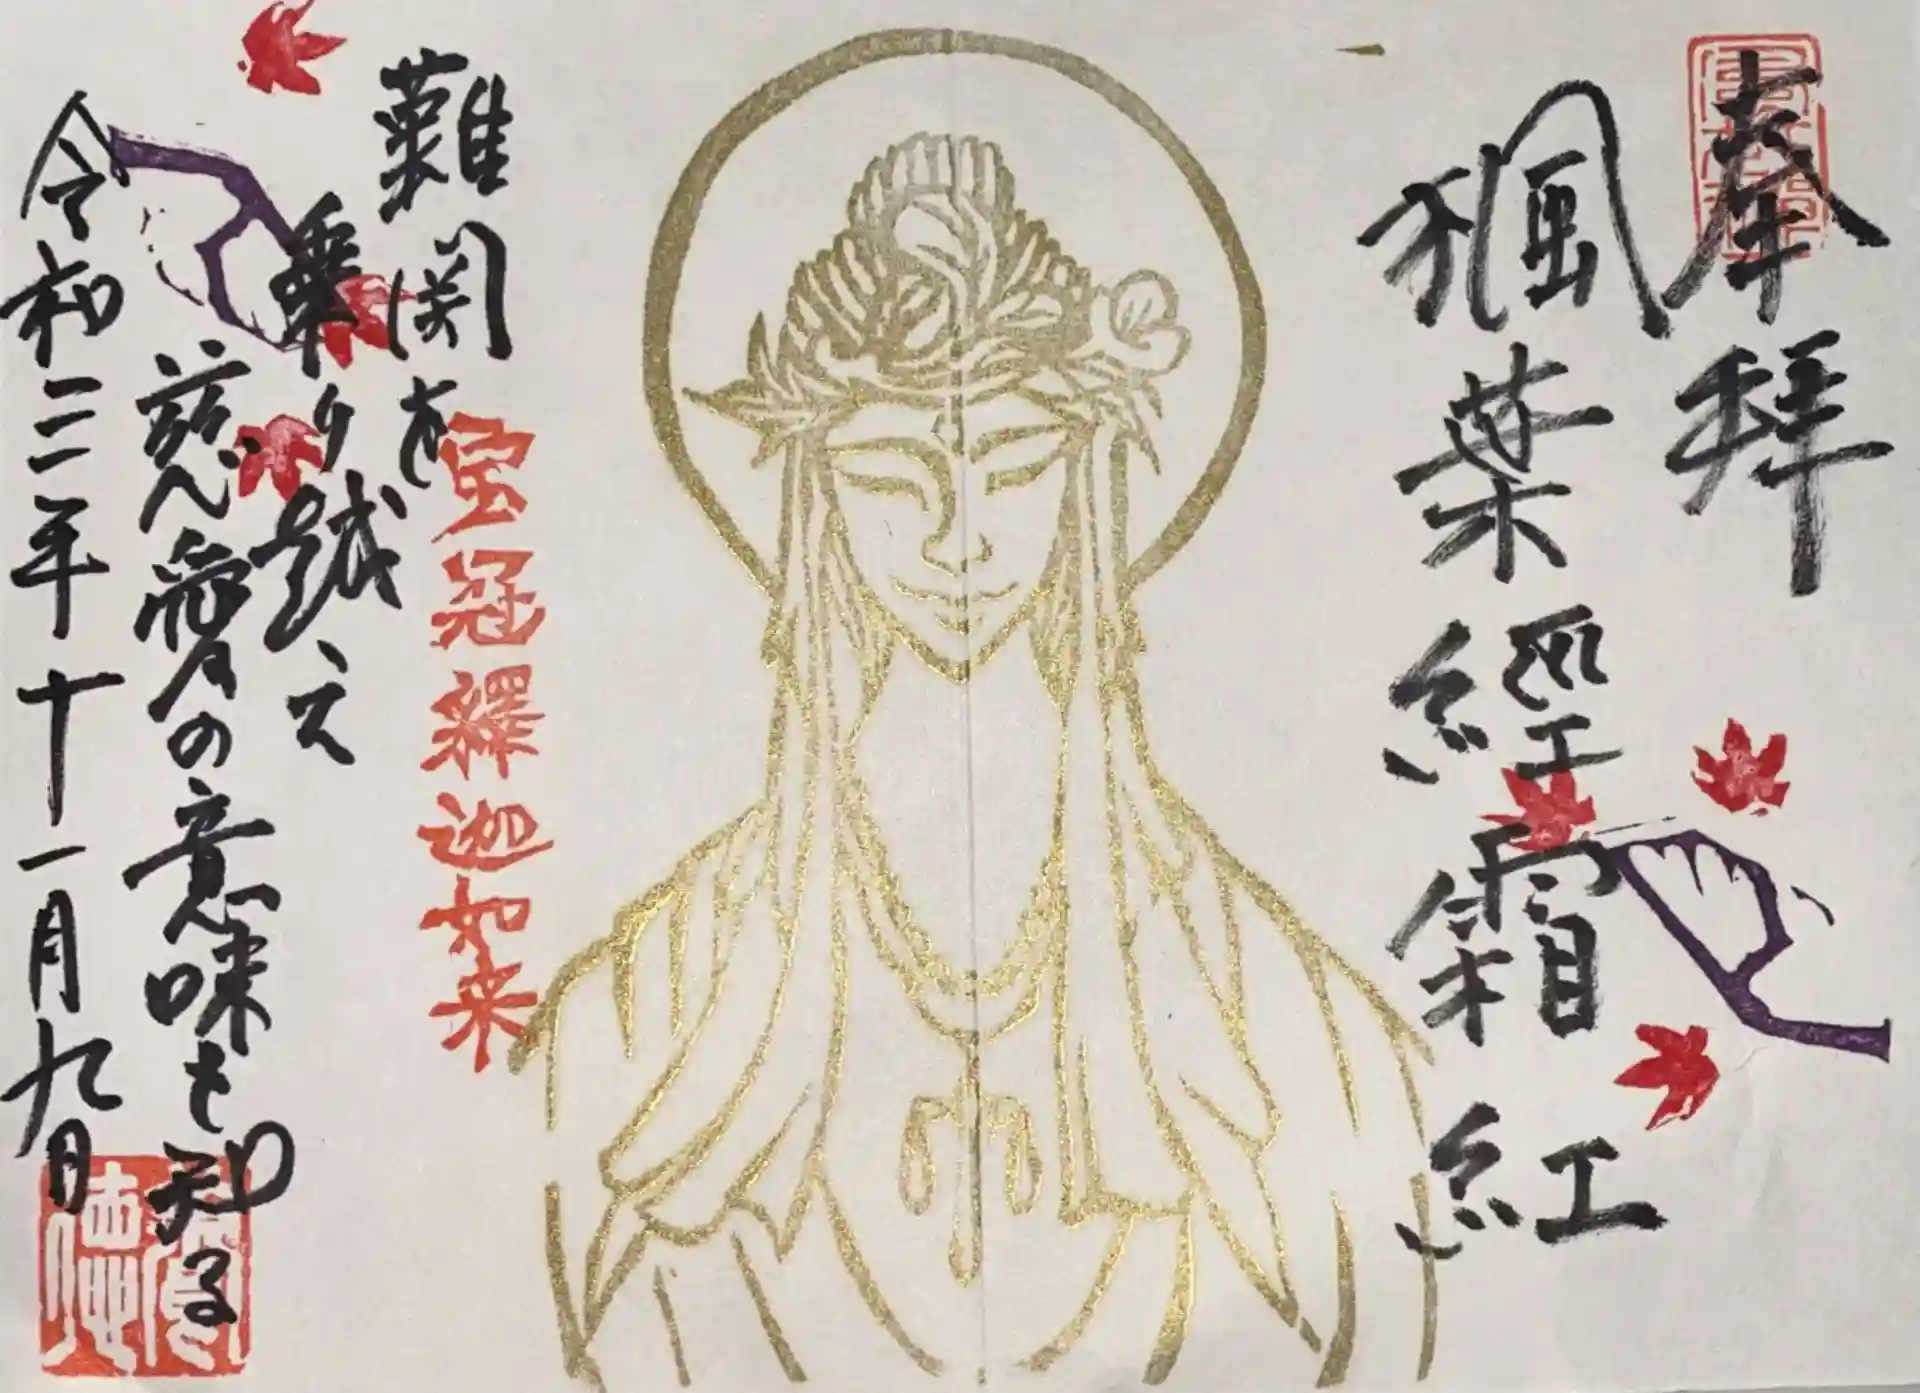 奉拝
楓葉經霜紅
宝冠釋迦如来
難関を
乗り越え
慈愛の意味を知る
令和二年十一月九日